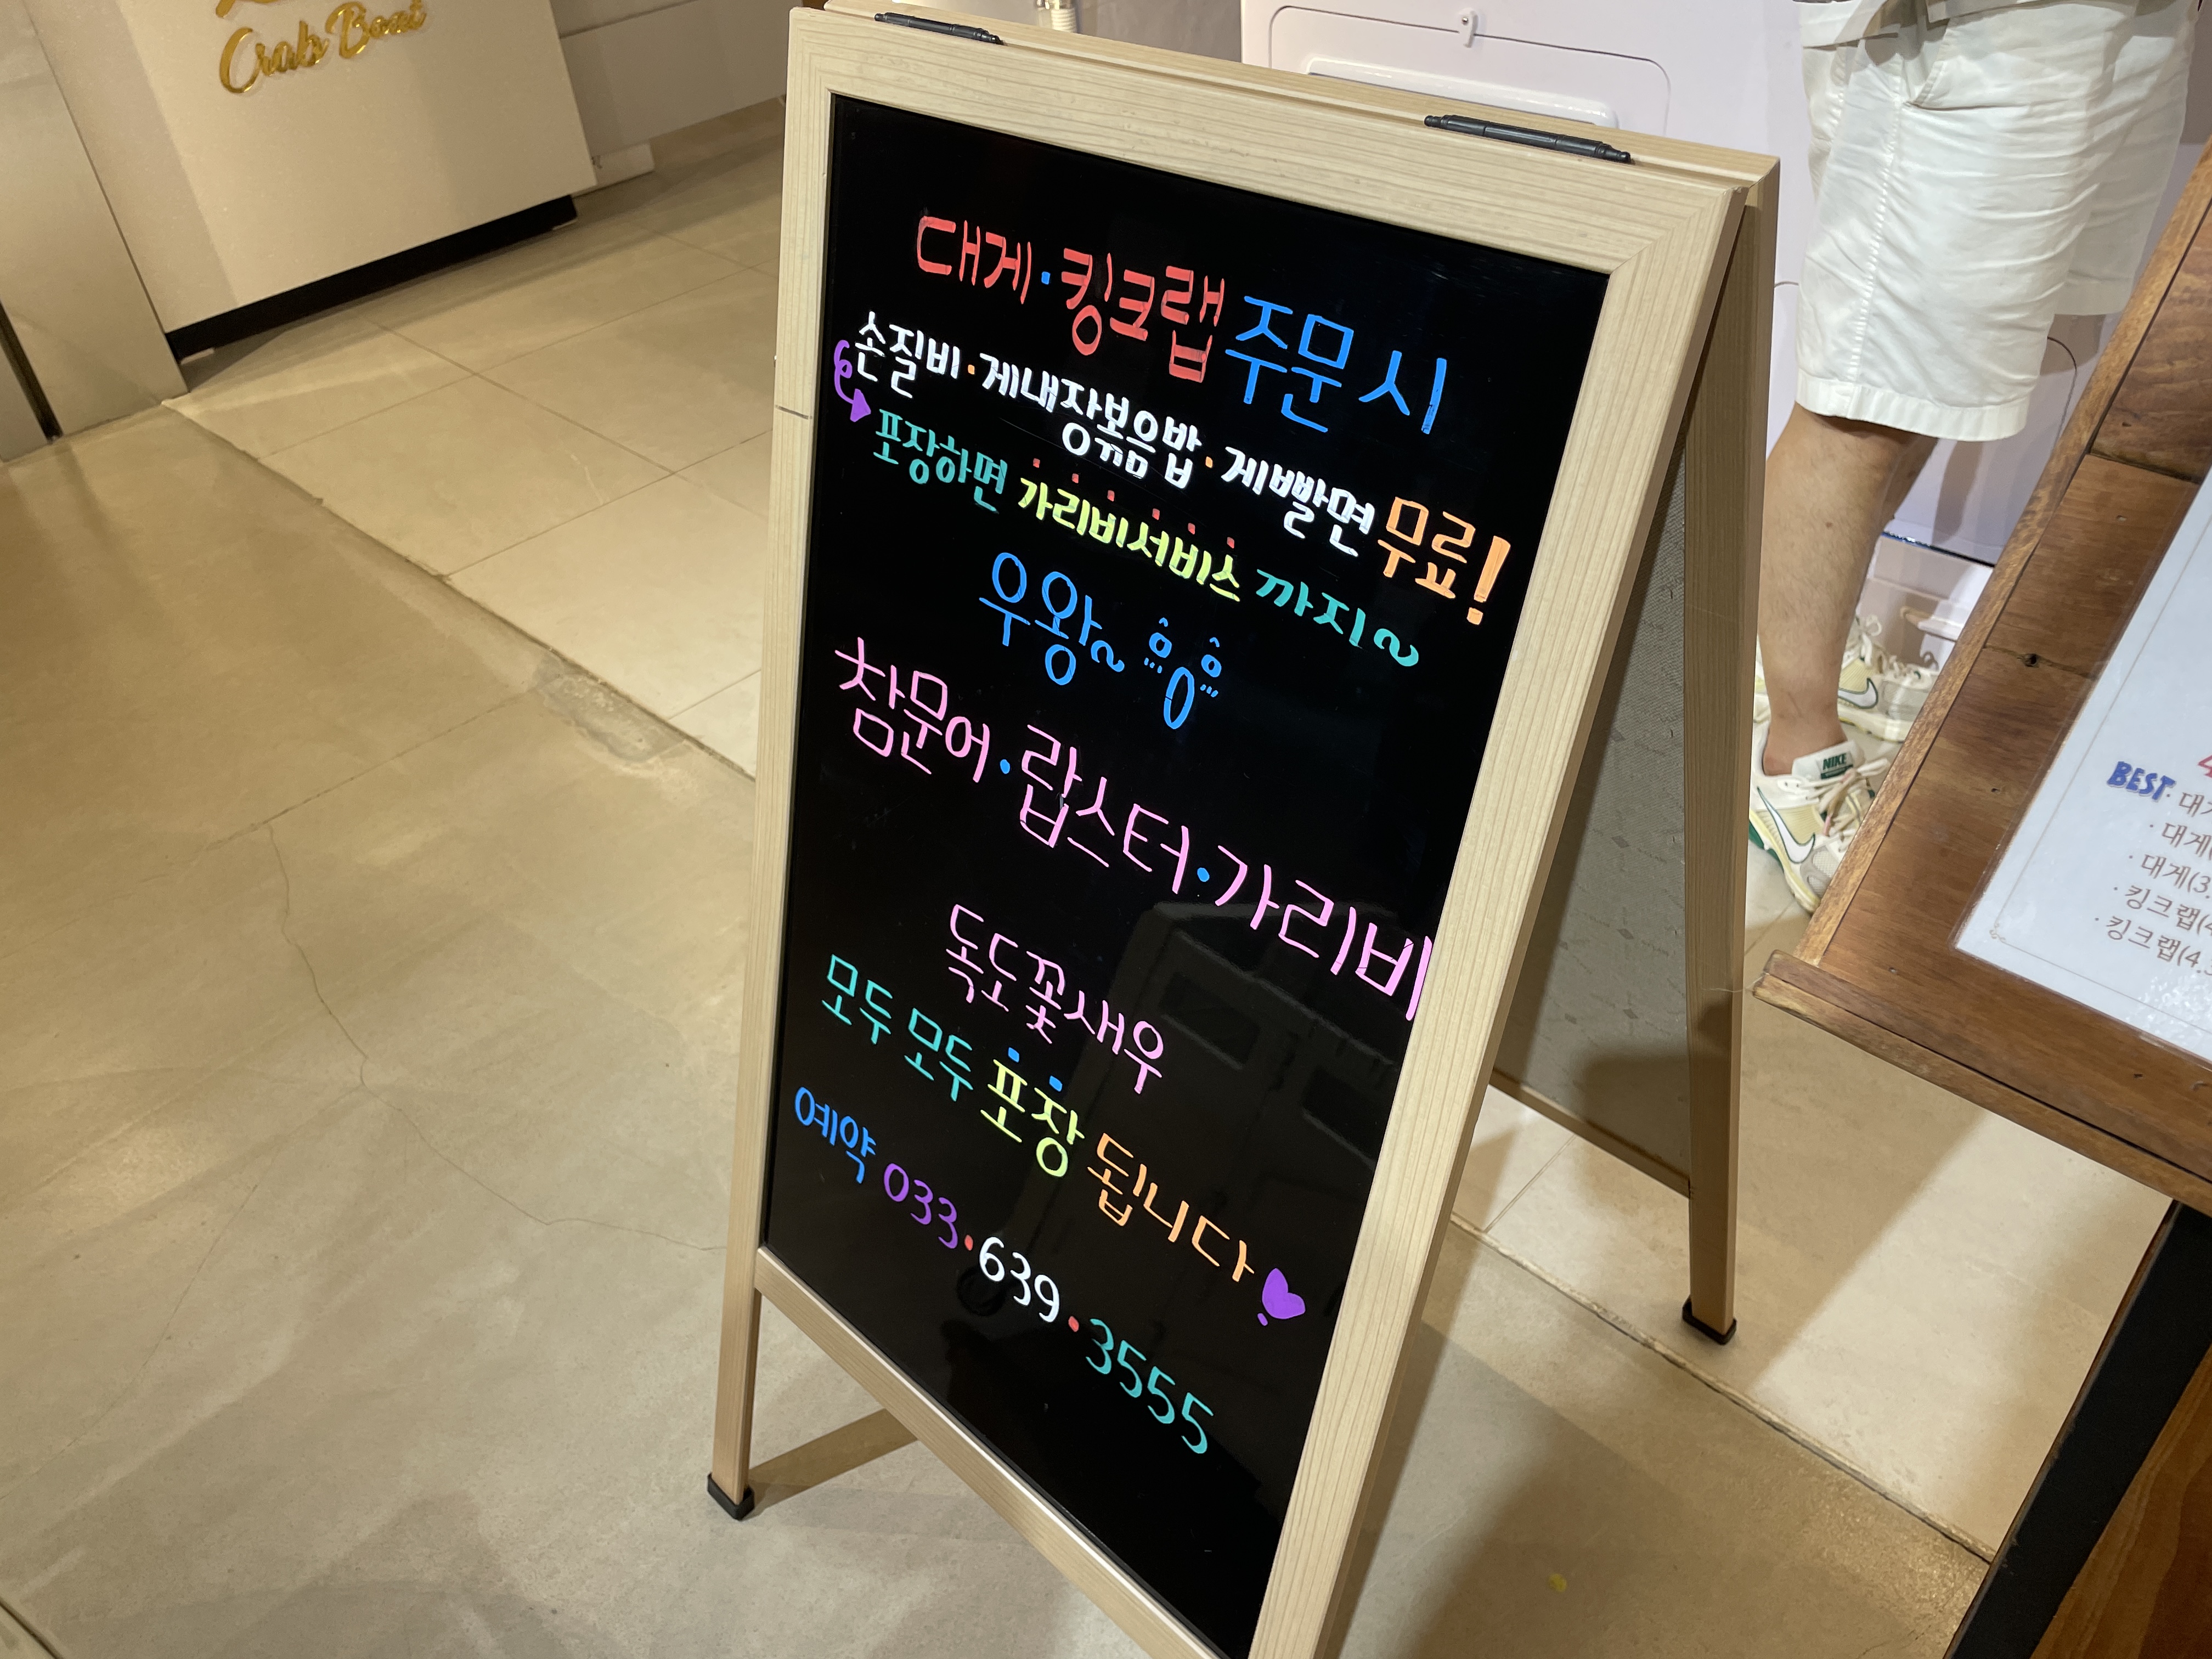 Crab Bear
대게·킹크랩 주문 시
손질비·게내장볶음밥·게빨면 무료!
포장하면 가리비서비스 까지~
우왕~
참문어·랍스터·가리비
독도꽃새우
모두 모두 포장 됩니다
예약 033·639·3555
NIKE
BEST
· 대게
· 대게(3.
· 킹크랩(4
· 킹크랩(4.